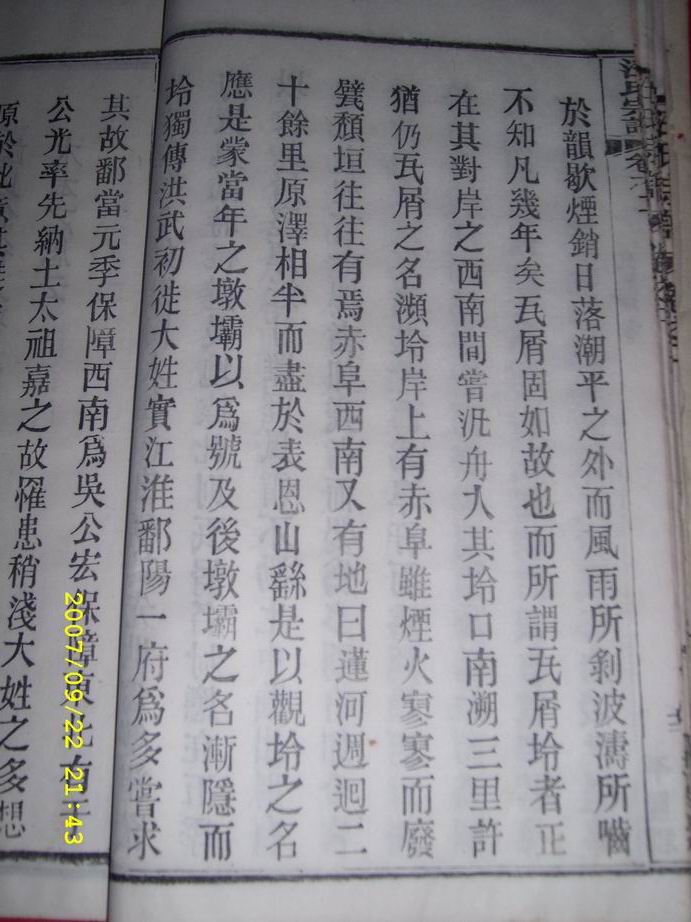 於韻歇煙銷日落潮平之外而風雨所剝波濤所嚙
不知凡幾年矣瓦屑固如故也而所謂瓦屑坽者正
在其對岸之西南間嘗汎舟入其坽口南溯三里許
猶仍瓦屑之名瀕坽岸上有赤阜雖煙火寥寥而廢
甓頹垣往往有焉赤阜西南又有地曰蓮河週迴二
十餘里原澤相半而盡於表恩山繇是以觀坽之名
應是蒙當年之墩壩以爲號及後墩壩之名漸隱而
坽獨傳洪武初徙大姓實江淮鄱陽一府爲多嘗求
其故鄱當元季保障西南爲吳公宏保障東北有于
公光率先納土太祖嘉之故罹患稍淺大姓之多想
2007/09/22 21:43